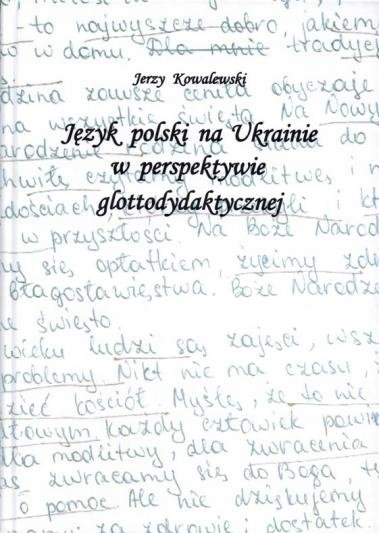 - to najwyższe dobro, jakiem
w w domu. Dla mnie tradycje
Jerzy Kowalewski
dzina zawsze ceniła obyczaje
na wszystkie święta. Na Nowy
Język polski na Ukrainie
w perspektywie
chwilę
glottodydaktycznej
w przyszłości. Na Boże Narod
się opłatkiem, życimy zdr
błagostawieństwa. Boże Narodze
święto
wieku ludzi są zajęci, wsz
problemy. Nikt nie ma czasu,
kościół. Myślę, że to nie
Każdy człowiek powi
dla modlitwy, dla zwracenia
zwracamy się do Boga,
o pomoc. Ale nie dziękujemy
za zdrowie i dostatek.